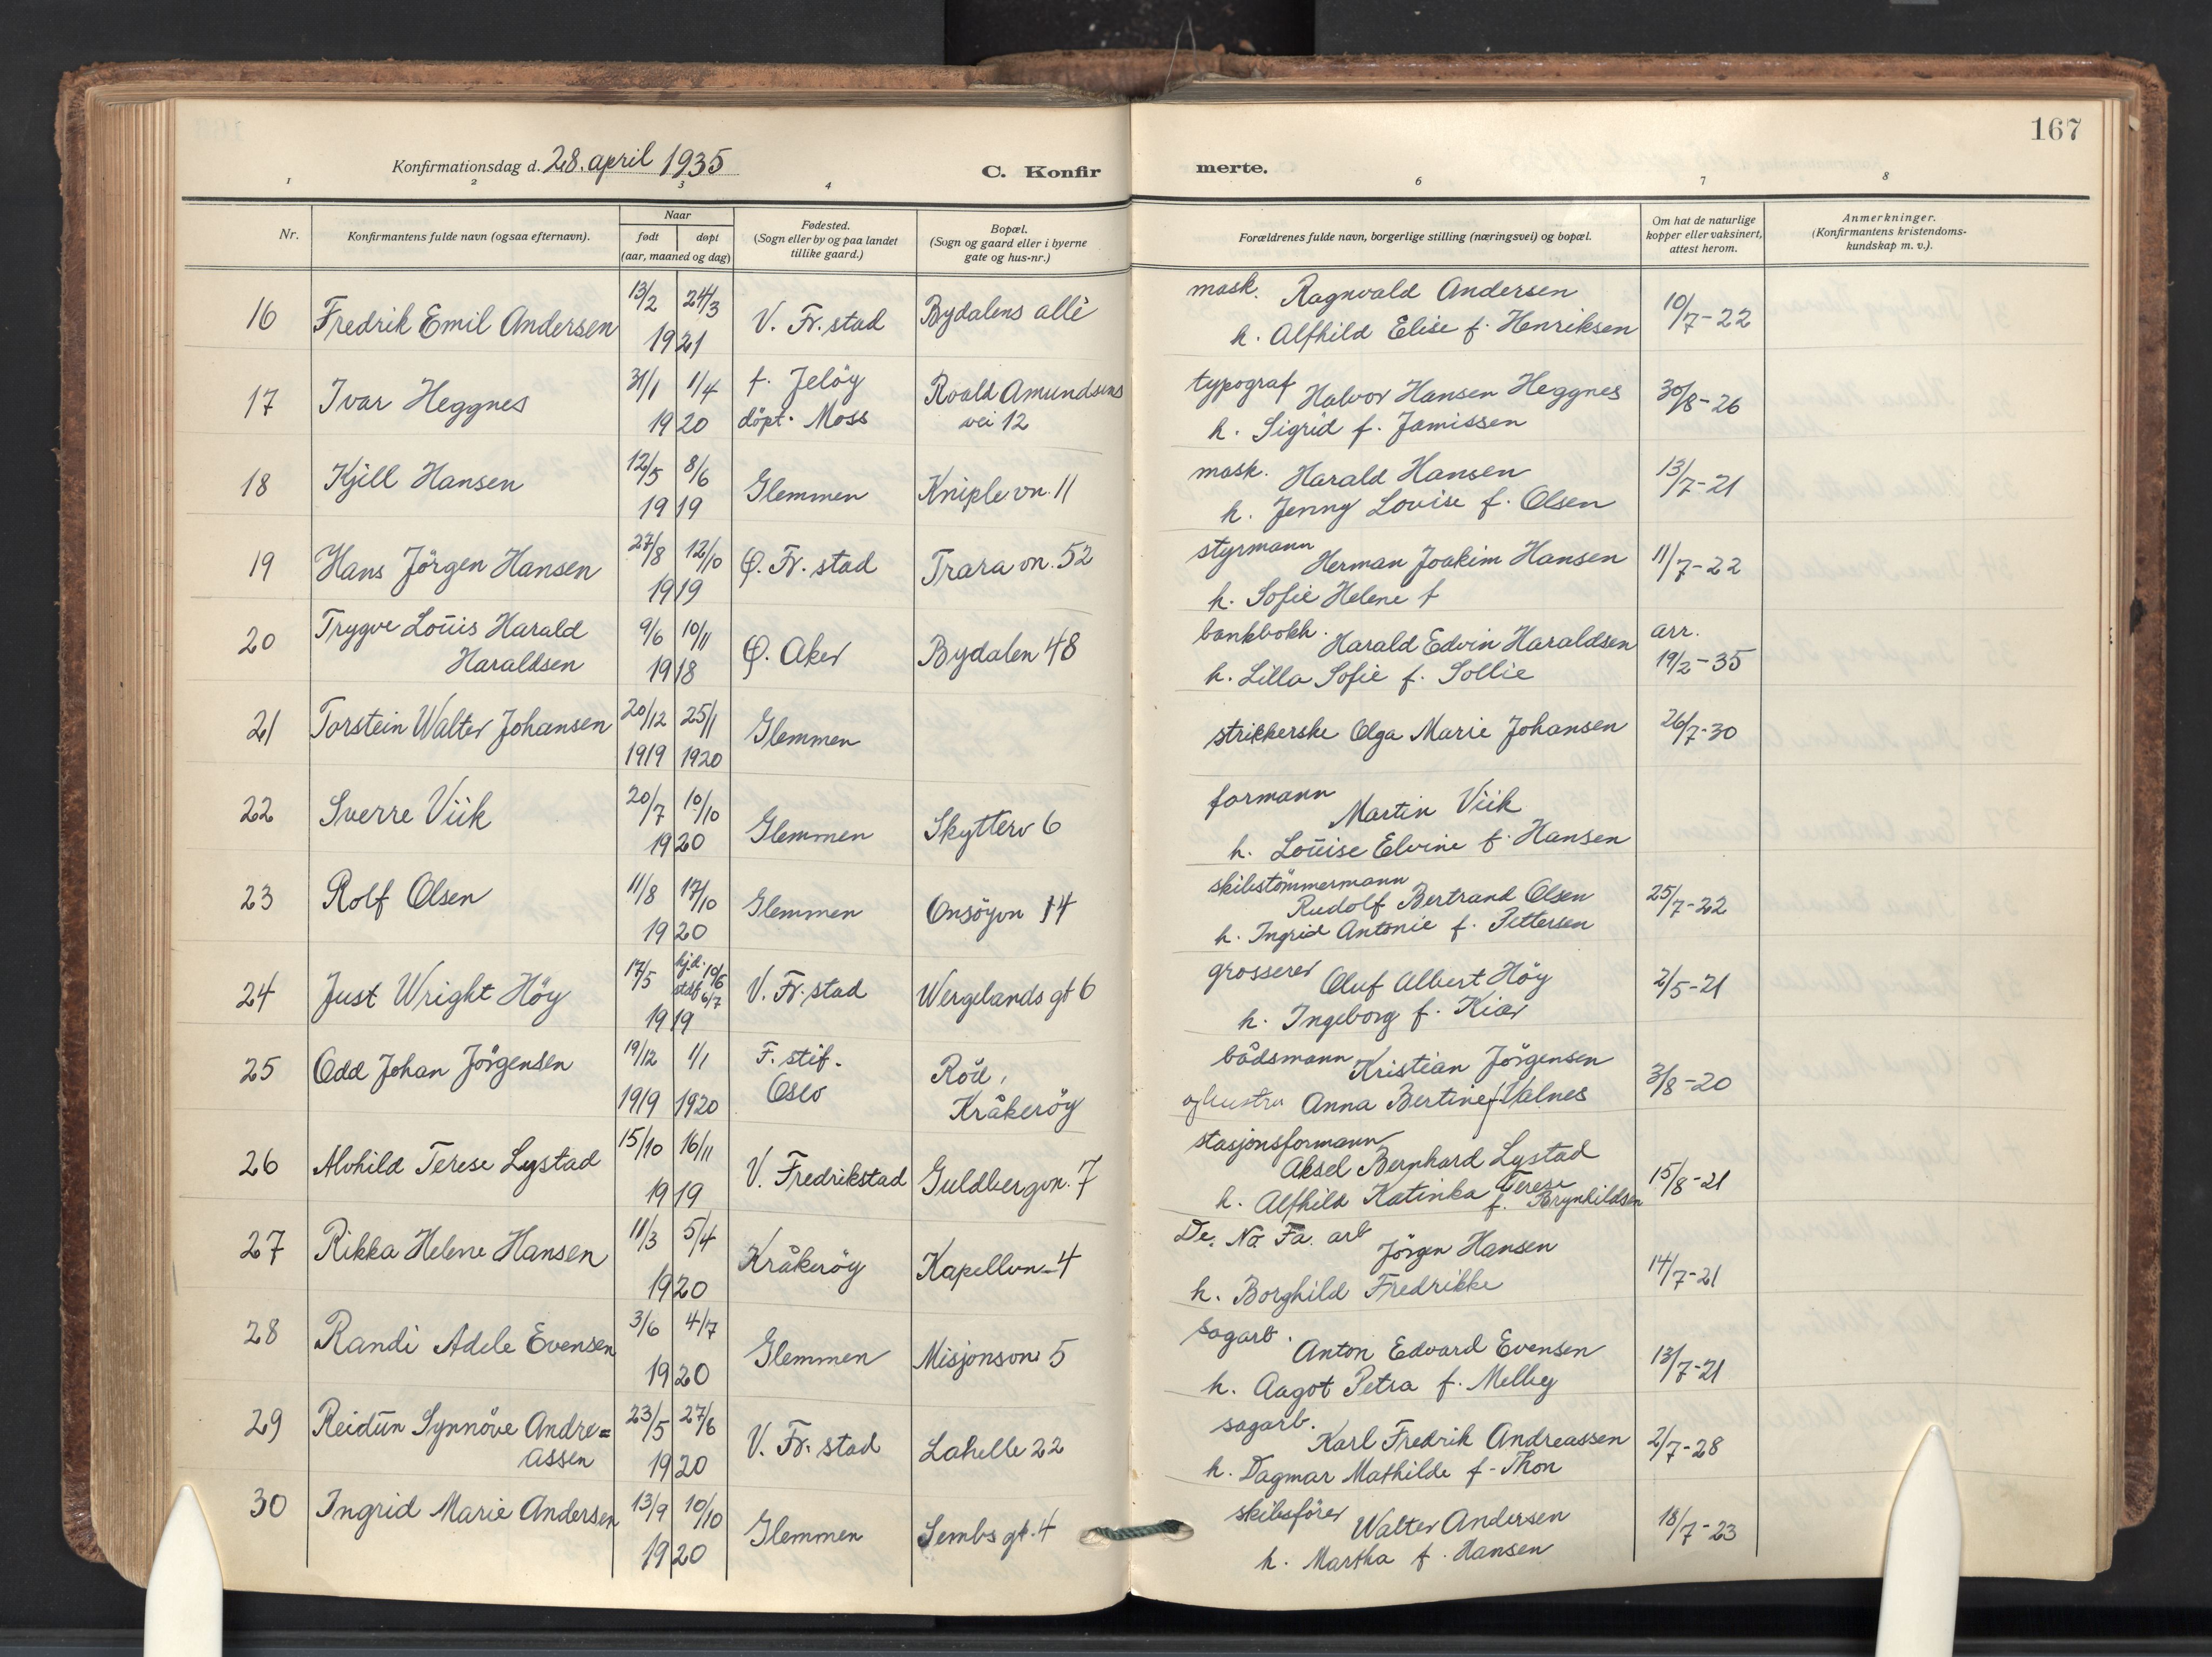 167
Konfirmationsdag d. 28. april 1935
C. Konfirmerte.
1 2 3 4 6 7 8
Nr.
Konfirmantens fulde navn (ogsaa efternavn).
Naar
født døpt
(aar, maaned og dag)
Fødested.
(Sogn eller by og paa landet
tillike gaard.)
Bopæl.
(Sogn og gaard eller i byerne
gate og hus-nr.)
Forældrenes fulde navn, borgerlige stilling (næringsvei) og bopæl.
Om hat de naturlige
kopper eller vaksinert,
attest herom.
Anmerkninger.
(Konfirmantens kristendoms-
kundskap m. v.).
16 Fredrik Emil Andersen 13/2 24/3 1921 V. Fr. stad Bydalens allé
mask. Ragnvald Andersen
h. Alfhild Elise f. Henriksen 10/7-22
17 Ivar Heggnes 31/1 1/4 1920 f. Jelöy
döpt. Moss
Roald Amundsens
vei 12
typograf Halvor Hansen Heggnes
h. Sigrid f. Jamissen 30/8-26
18 Kjell Hansen 12/5 8/6 1919 Glemmen Kniplevn. 11
mask. Harald Hansen
h. Jenny Lovise f. Olsen 13/7-21
19 Hans Jörgen Hansen 27/8 12/10 1919 Ø. Fr. stad Trara vn. 52
styrmann Herman Joakim Hansen
h. Sofie Helene f 11/7-22
20 Trygve Louis Harald
Haraldsen 9/6 10/11 1918 Ø. Aker Bydalen 48
bankbokh. Harald Edvin Haraldsen
h. Lilla Sofie f. Sollie arr.
19/2-35
21 Torstein Walter Johansen 20/12 25/1
1919 1920 Glemmen
strikkerske Olga Marie Johansen 26/7-30
22 Sverre Viik 20/7 10/10 1920 Glemmen Skytterv 6
formann Martin Viik
h. Louise Elvine f. Hansen
23 Rolf Olsen 11/8 17/10 1920 Glemmen Onsöyvn 14
skibstömmermann
Rudolf Bertrand Olsen
h. Ingrid Antonie f. Pettersen 25/7-22
24 Just Wright Höy 17/5 hj.d. 10/6
stadf 6/7 1919 V. Fr. stad Wergelands gt 6
grosserer Oluf Albert Höy
h. Ingeborg f. Kiær 2/5-21
25 Odd Johan Jörgensen 19/12 1/1
1919 1920 F. stif.
Oslo
Röd,
Kråkeröy
bådsmann Kristian Jörgensen
og hustru Anna Bertine f. Valnes 3/8-20
26 Alvhild Terese Lystad 15/10 16/11 1919 V. Fredrikstad Guldbergvn. 7
stasjonsformann
Aksel Bernhard Lystad
h. Alfhild Katinka Terese f. Brynhildsen 15/8-21
27 Rikka Helene Hansen 11/3 5/4 1920 Kråkeröy Kapellvn. 4
De. No. Fa. arb Jörgen Hansen
h. Borghild Fredrikke 14/7-21
28 Randi Adele Evensen 3/6 4/7 1920 Glemmen Misjonsvn 5
sagarb. Anton Edvard Evensen
h. Aagot Petra f. Melby 13/7-21
29 Reidun Synnöve Andre=
assen 23/5 27/6 1920 V. Fr. stad Lahelle 22
sagarb. Karl Fredrik Andreassen
h. Dagmar Mathilde f. Thon 2/7-28
30 Ingrid Marie Andersen 13/9 10/10 1920 Glemmen Sembs gt. 4
skibsförer Walter Andersen
h. Martha f. Hansen 18/7-23